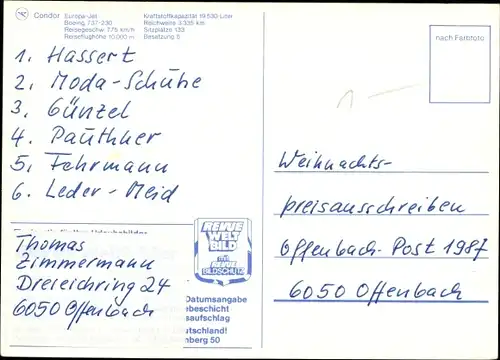 Condor
Europa-Jet
Boeing 737-230
Reisegeschw. 775 km/h
Reiseflughöhe 10 000 m
Kraftstoffkapazität 19 530 Liter
Reichweite 3 335 km
Sitzplätze 133
Besatzung 5
nach Farbfoto
1. Hassert
2. Moda-Schuhe
3. Günzel
4. Pauthner
5. Fehrmann
6. Leder-Meid
Thomas
Zimmermann
Dreieichring 24
6050 Offenbach
REWE
WELT
BILD
mit
REWE
BILDSCHUTZ
Datumsangabe
ebeschicht
saufschlag
utschland!
nberg 50
Weihnachts-
preisausschreiben
Offenbach-Post 1987
6050 Offenbach